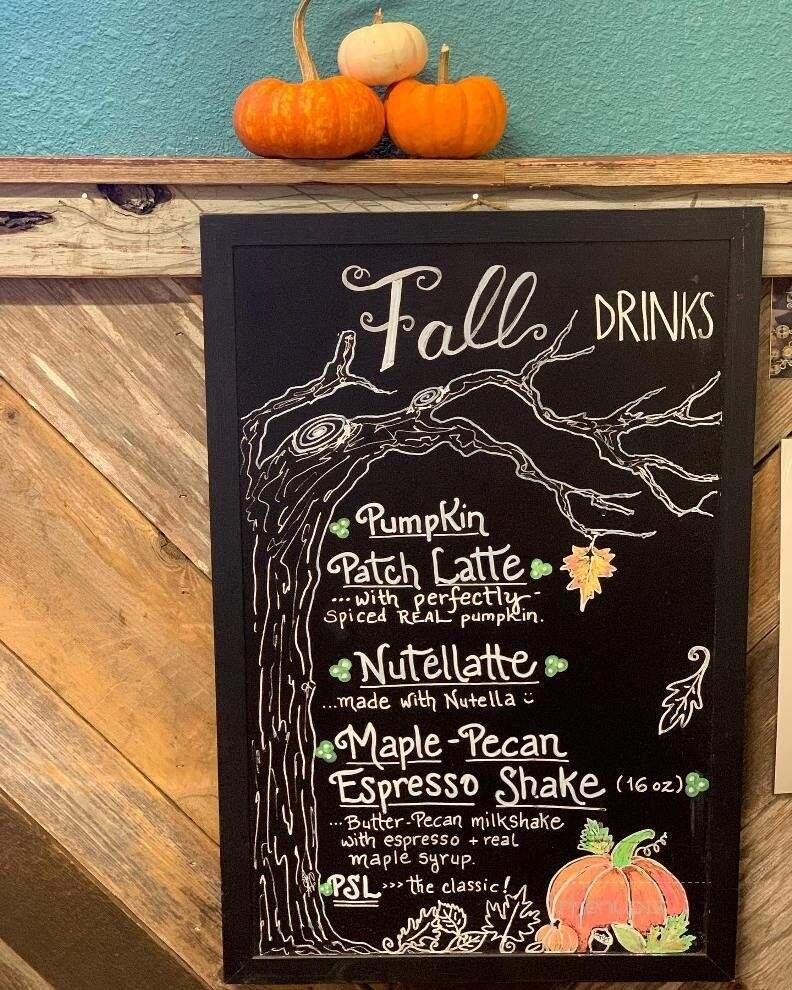 Fall DRINKS
Pumpkin
Patch Latte
...with perfectly-
Spiced REAL pumpkin.
Nutellatte
...made with Nutella ü
Maple-Pecan
Espresso Shake (16 oz)
...Butter-Pecan milkshake
with espresso + real
maple syrup.
PSL >>> the classic!